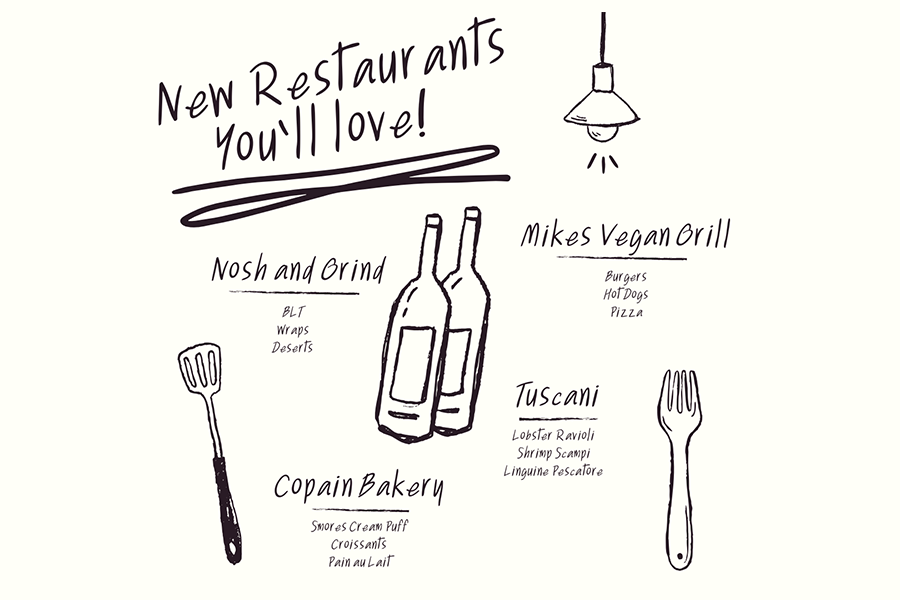 New Restaurants
You`ll love!
Nosh and Grind
BLT
Wraps
Deserts
Mikes Vegan Grill
Burgers
Hot Dogs
Pizza
Tuscani
Lobster Ravioli
Shrimp Scampi
Linguine Pescatore
Copain Bakery
Smores Cream Puff
Croissants
Pain au Lait